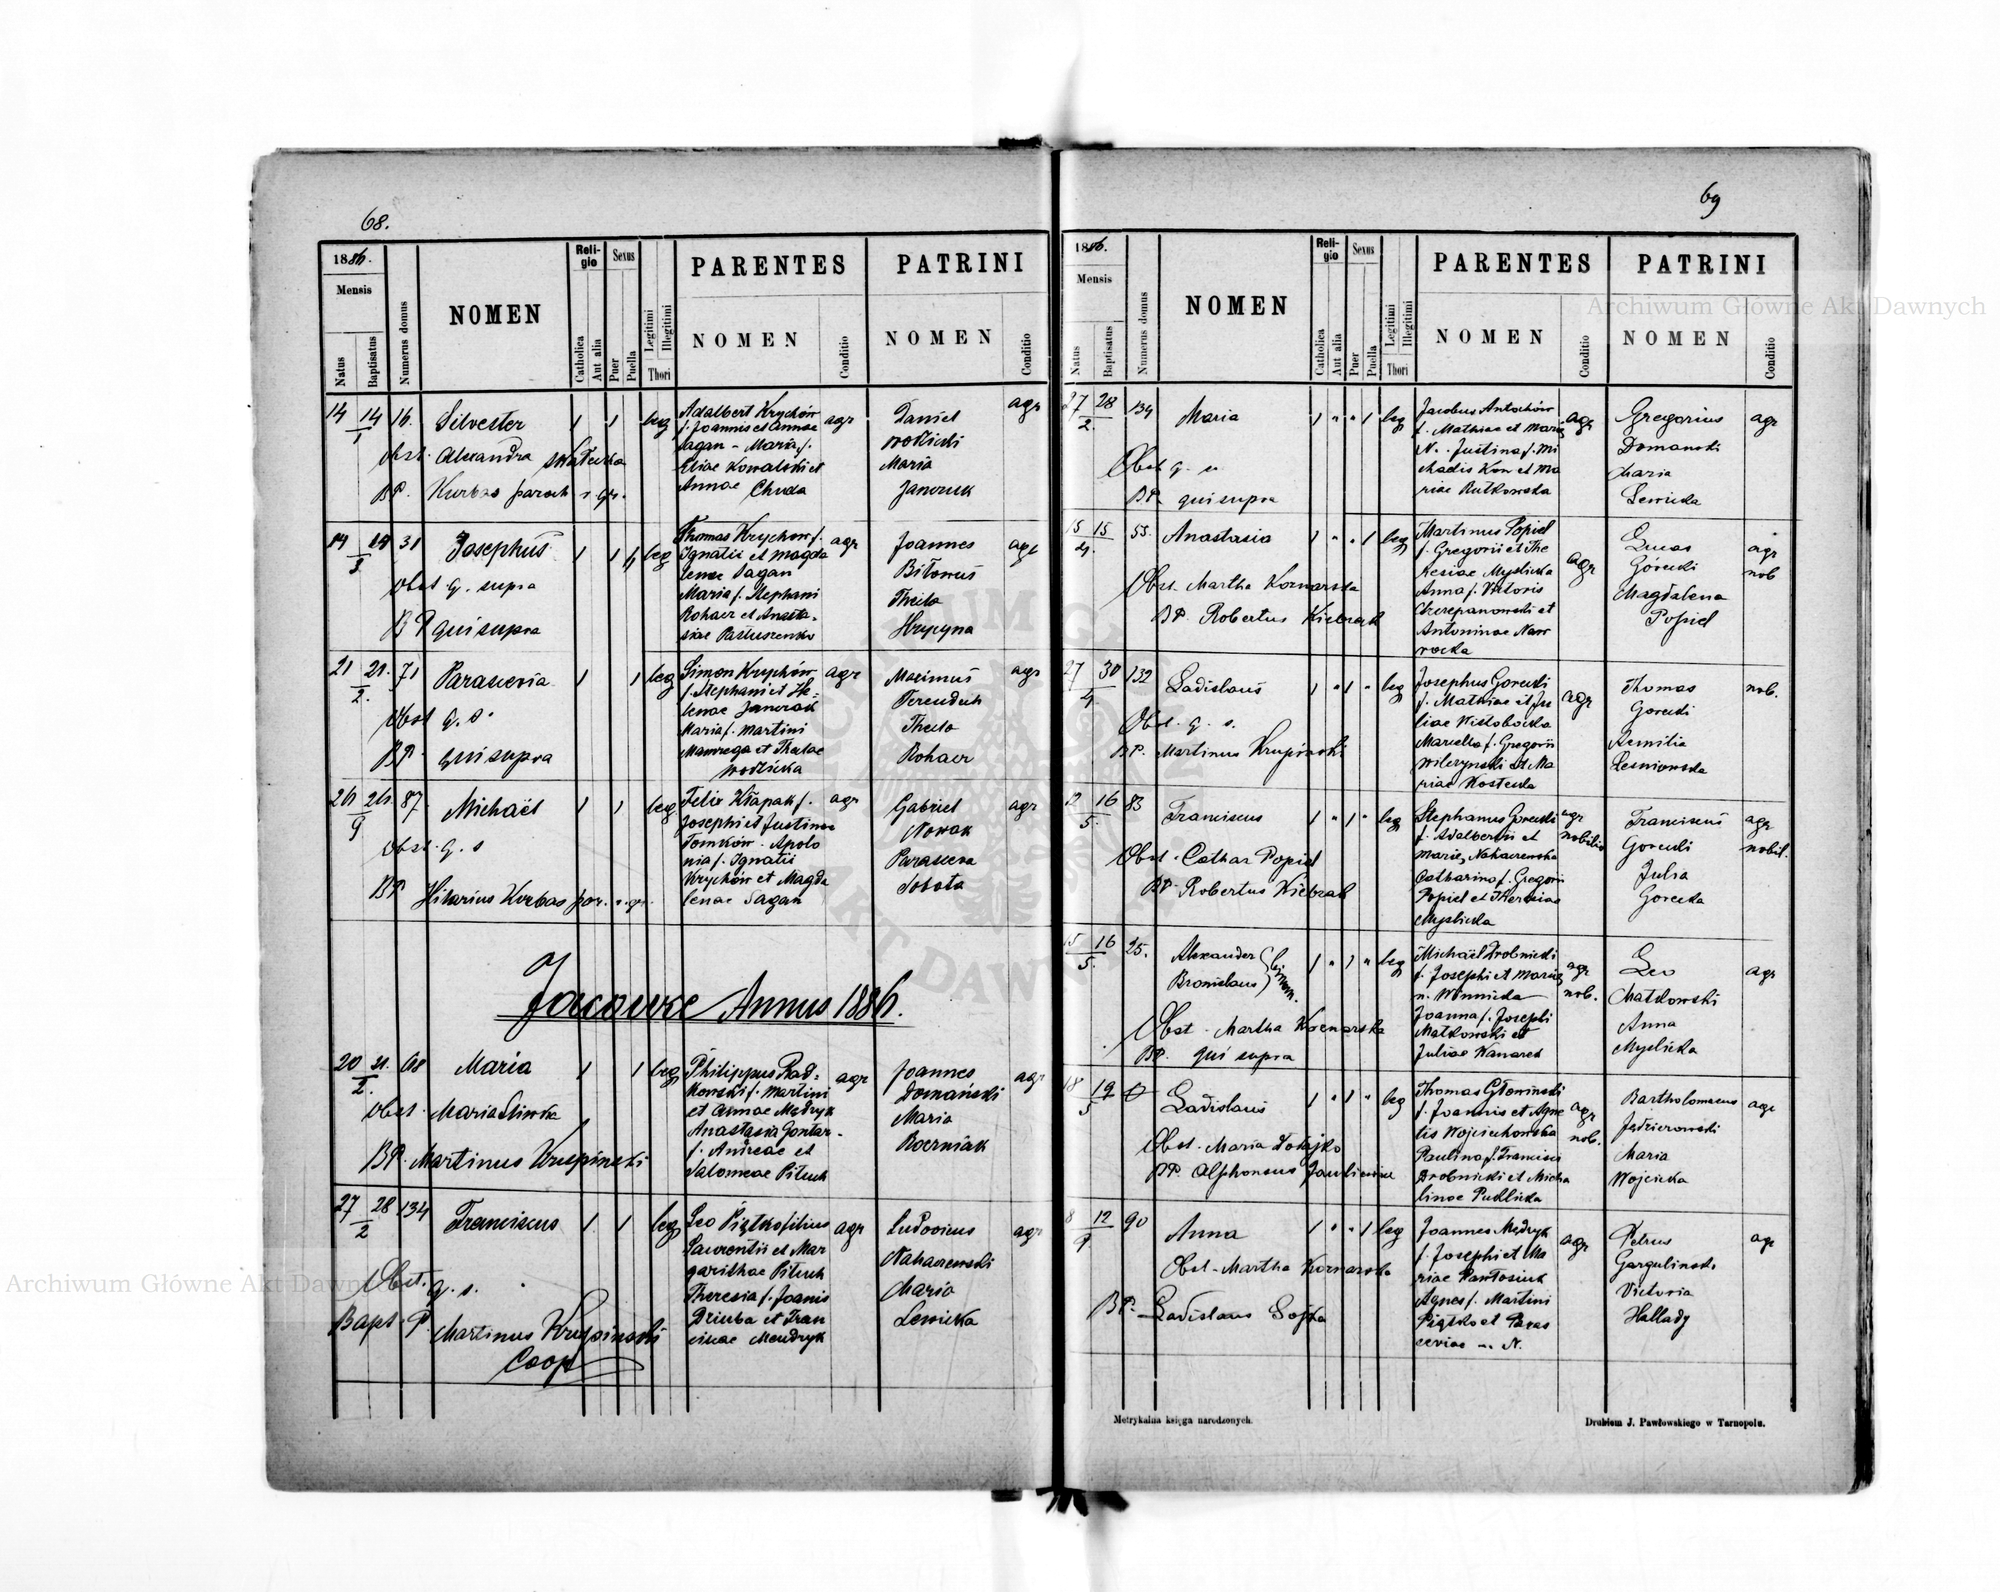 68.
1886.
Mensis
Natus
Baptisatus
Numerus domus
NOMEN
Religio
Catholica
Aut alia
Sexus
Puer
Puella
Legitimi
Illegitimi
Thori
PARENTES
NOMEN
Conditio
PATRINI
NOMEN
Conditio
14 14/1 16. Silvester 1 1 leg
Obst. Alexandra
BP. Kurbas paroch r. gr.
Adalbert Krychów
f. Joannis et Annae
Sagan - Maria f.
Eliae Kowalski et
Annae Chuda
agr
Daniel
Wodzicki
Maria
Janczuk
agr
14 14/3 31 Josephus 1 1 leg
Obst q. supra
BP qui supra
Thomas Krychow f.
Ignatii et Magda
lenae Sagan
Maria f. Stephani
Rohacz et Anasta-
siae Pastuszenko
agr
Joannes
Bitowus
Thecla
Hrycyna
agr
21 21./2. 71 Parascevia 1 1 leg
Obst q. s.
BP. qui supra
Simon Krychów
f. Stephani et He-
lenae Janczak
Maria f. Martini
Mamrega et Theclae
Wodzicka
agr
Maximus
Thecla
Rohacz
agr
26 26./9 87 Michaël 1 1 leg
Obst. q. s
BP Hilarius Kurbas par. r. gr.
Felix Kłapak f.
Josephi et Justinae
Tomków. Apolo
nia f. Ignatii
Krychów et Magda
lenae Sagan
agr
Gabriel
Nowak
Parasceva
Sobota
agr
Jacowce Annus 1886.
20 21./2. 68 Maria 1 1 leg
Obst. Maria Sliwka
BP. Martinus Krupinski
Philippus Rad-
kowski f. Martini
et Annae Mędryk
Anastasia Gontar-
f. Andreae et
Salomeae Pituch
agr
Joannes
Domański
Maria
Roczniak
agr
27 28/2 134 Franciscus 1 1 leg
Obst. q. s.
Bapt. P. Martinus Krupinski
Coop
Leo Piątko filius
Laurentii et Mar
garithae Pituch
Theresia f. Joanis
Dziuba et Fran
ciscae Mendryk
agr
Ludovicus
Nahaczewski
Maria
Lewicka
agr
69
1886.
Mensis
Natus
Baptisatus
Numerus domus
NOMEN
Religio
Catholica
Aut alia
Sexus
Puer
Puella
Legitimi
Illegitimi
Thori
PARENTES
NOMEN
Conditio
PATRINI
NOMEN
Conditio
27 28/2. 134 Maria 1 " " 1 leg
Obst q. s.
BP. qui supra
Jacobus Antochów
f. Mathiae et Maria
N. - Justina f. Mi
chaelis Kow et Ma
riae Rutkowska
agr
Gregorius
Domanski
Maria
Lewicka
agr
15 15/4. 55. Anastasia 1 " " 1 leg
Obst. Martha Koznarska
BP. Robertus Kiebzak
Martinus Popiel
f. Gregorii et The
resiae Myslicka
Anna f. Victoris
Czerepanowski et
Antoninae Naw
rocka
agr
Lucas
Gorecki
Magdalena
Popiel
agr
nob
27 30/4 132 Ladislaus 1 " 1 " leg
Obst. q. s.
BP. Martinus Krupinski
Josephus Gorecki
f. Mathiae et Ju
liae Wistobocka
Mariella f. Gregorii
Wilczynski et Ma
riae Kostecka
agr
Thomas
Gorecki
Aemilia
Lesniowska
nob.
12 16/5. 83 Franciscus 1 " 1 " leg
Obst. Cathar Popiel
BP. Robertus Kiebzak
Stephanus Gorecki
f. Adalberti et
Maria, Nahaczewska
Catharina f. Gregorii
Popiel et Theresiae
Myslicka
agr
nobilis
Franciscus
Gorecki
Julia
Gorecka
agr
nobil.
15 16/5. 25. Alexander
Bronislaus
1 " 1 " leg
Obst. Martha Kocnarska
BP. qui supra
Michaël Drobnicki
f. Josephi et Maria
n. Winnicka
Joanna f. Josephi
Matkowski et
Juliae Kanarek
agr
nob.
Leo
Matkowski
Anna
Myslicka
agr
18 19/5 Ladislaus 1 " 1 " leg
Obst. Maria Dotajko
BP. Alphonsus
Thomas Głowinski
f. Joannis et Agne
tis Wojciechowska
Paulina f. Francisci
Drobnicki et Micha
linae Pudlicka
agr
nob.
Bartholomaeus
Jędrzerowski
Maria
Wojcicka
agr
8 12/9 90 Anna 1 " " 1 leg
Obst. Martha Koznarska
BP. Ladislaus Sojka
Joannes Mędryk
f. Josephi et Ma
riae Pantosiuk
Agnes f. Martini
Piątko et Paras
ceviae - N.
agr
Petrus
Gargulinski
Victoria
Hallady
agr
Metrykalna księga narodzonych.
Drukiem J. Pawłowskiego w Tarnopolu.
Archiwum Główne Akt Dawnych
Archiwum Główne Akt Dawnych